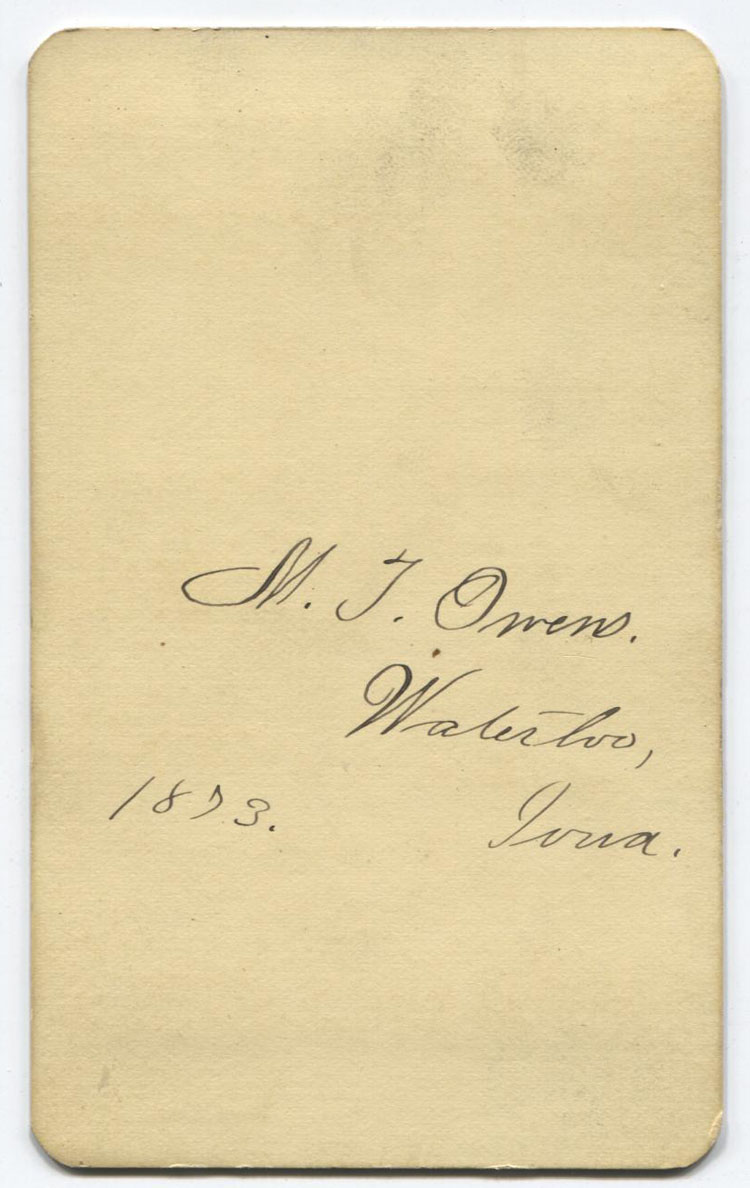 M. T. Owens.
Waterloo,
1873. Iowa.